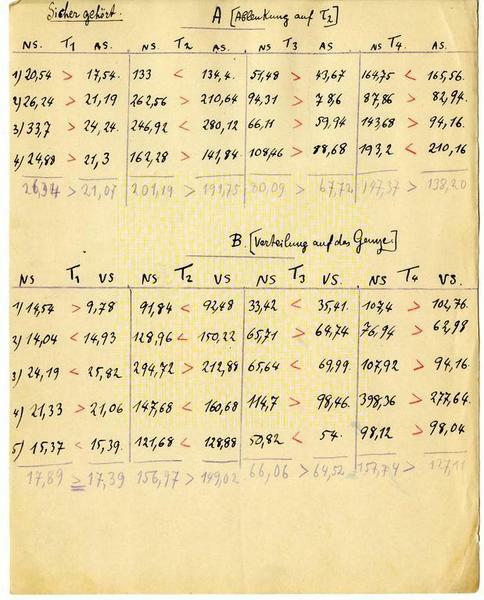 Sicher gehört. A [Ablenkung auf T2]
NS. T1 AS. NS T2 AS. NS T3 AS NS T4 AS.
1) 20,54 > 17,54. 133 < 134,4. 51,48 > 43,67 164,75 < 165,56.
2) 26,24 > 21,19 262,56 > 210,64 94,31 > 78,6 87,86 > 82,94.
3) 33,7 > 24,24. 246,92 < 280,12 66,11 > 59,94 143,68 > 94,16.
4) 24,88 > 21,3 162,28 > 141,84. 108,46 > 88,68 193,2 < 210,16
> 21,07 201,19 > 191,75 80,09 > 67,72 147,37 > 138,20
B [Verteilung auf das Ganze]
NS T1 VS NS T2 VS NS T3 VS. NS T4 VS.
1) 14,54 > 9,78 91,84 < 92,48 33,42 < 35,41. 107,4 > 102,76.
2) 14,04 < 14,93 128,96 < 150,22 65,71 > 64,74 76,94 > 62,98
3) 24,19 < 25,82 294,72 > 212,88 65,64 < 69,99. 107,92 > 94,16.
4) 21,33 > 21,06 147,68 < 160,68 114,7 > 98,46. 398,36 > 277,64.
5) 15,37 < 15,39. 121,68 < 128,88 50,82 < 54. 98,12 > 98,04.
17,89 > 17,39 156,97 > 149,02 66,06 > 64,52 157,74 > 127,11